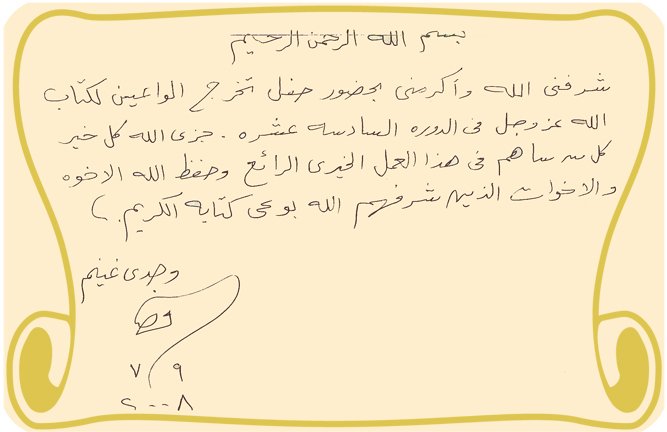 بسم الله الرحمن الرحيم
شرفنى الله وأكرمنى بحضور حفل تخرج الواعين لكتاب
الله عز وجل فى الدوره السادسه عشره . جزى الله كل خير
كل من ساهم فى هذا العمل الخيرى الرائع وحفظ الله الاخوه
والاخوات الذين شرفهم الله بوعى كتابه الكريم
وجدى غنيم
٧ ٩
٢٠٠٨